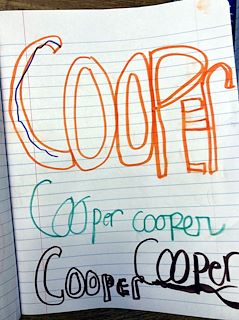 Cooper
Cooper cooper
Cooper Cooper